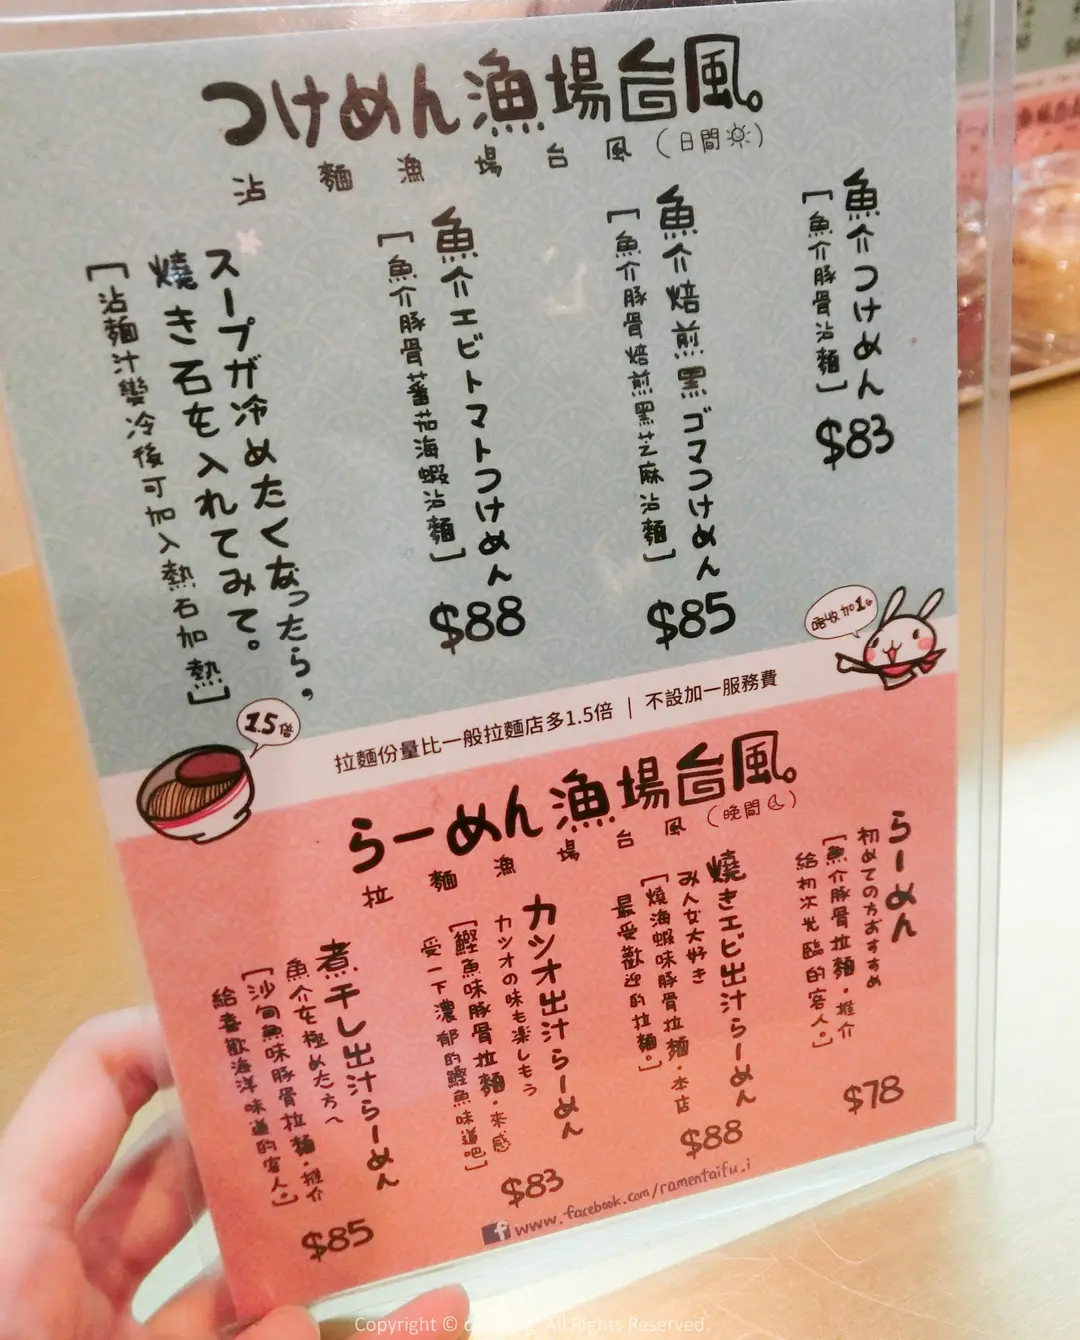 つけめん漁場台風。
沾麵漁場台風(日間)
魚介つけめん
[魚介豚骨沾麵]
$83
魚介焙煎黑ゴマつけめん
[魚介豚骨焙煎黑芝麻沾麵]
$85
魚介エビトマトつけめん
[魚介豚骨蕃茄海蝦沾麵]
$88
スープが冷めたくなったら,
燒き石を入れてみて。
[沾麵汁變冷後可加入熱石加熱]
唔收加1
1.5倍
拉麵份量比一般拉麵店多1.5倍 | 不設加一服務費
らーめん漁場台風。
拉麵漁場台風(晚間)
らーめん
初めての方おすすめ
[魚介豚骨拉麵·推介
給初次光臨的客人。]
$78
燒きエビ出汁らーめん
みんな大好き
[燒海蝦味豚骨拉麵·本店
最受歡迎的拉麵。]
$88
カツオ出汁らーめん
カツオの味も楽しもう
[鰹魚味豚骨拉麵·來感
受一下濃郁的鰹魚味道吧]
$83
煮干し出汁らーめん
魚介を極めた方へ
[沙甸魚味豚骨拉麵·推介
給喜歡海洋味道的客人。]
$85
f www.facebook.com/ramentaifu.i
Copyright © All Rights Reserved.